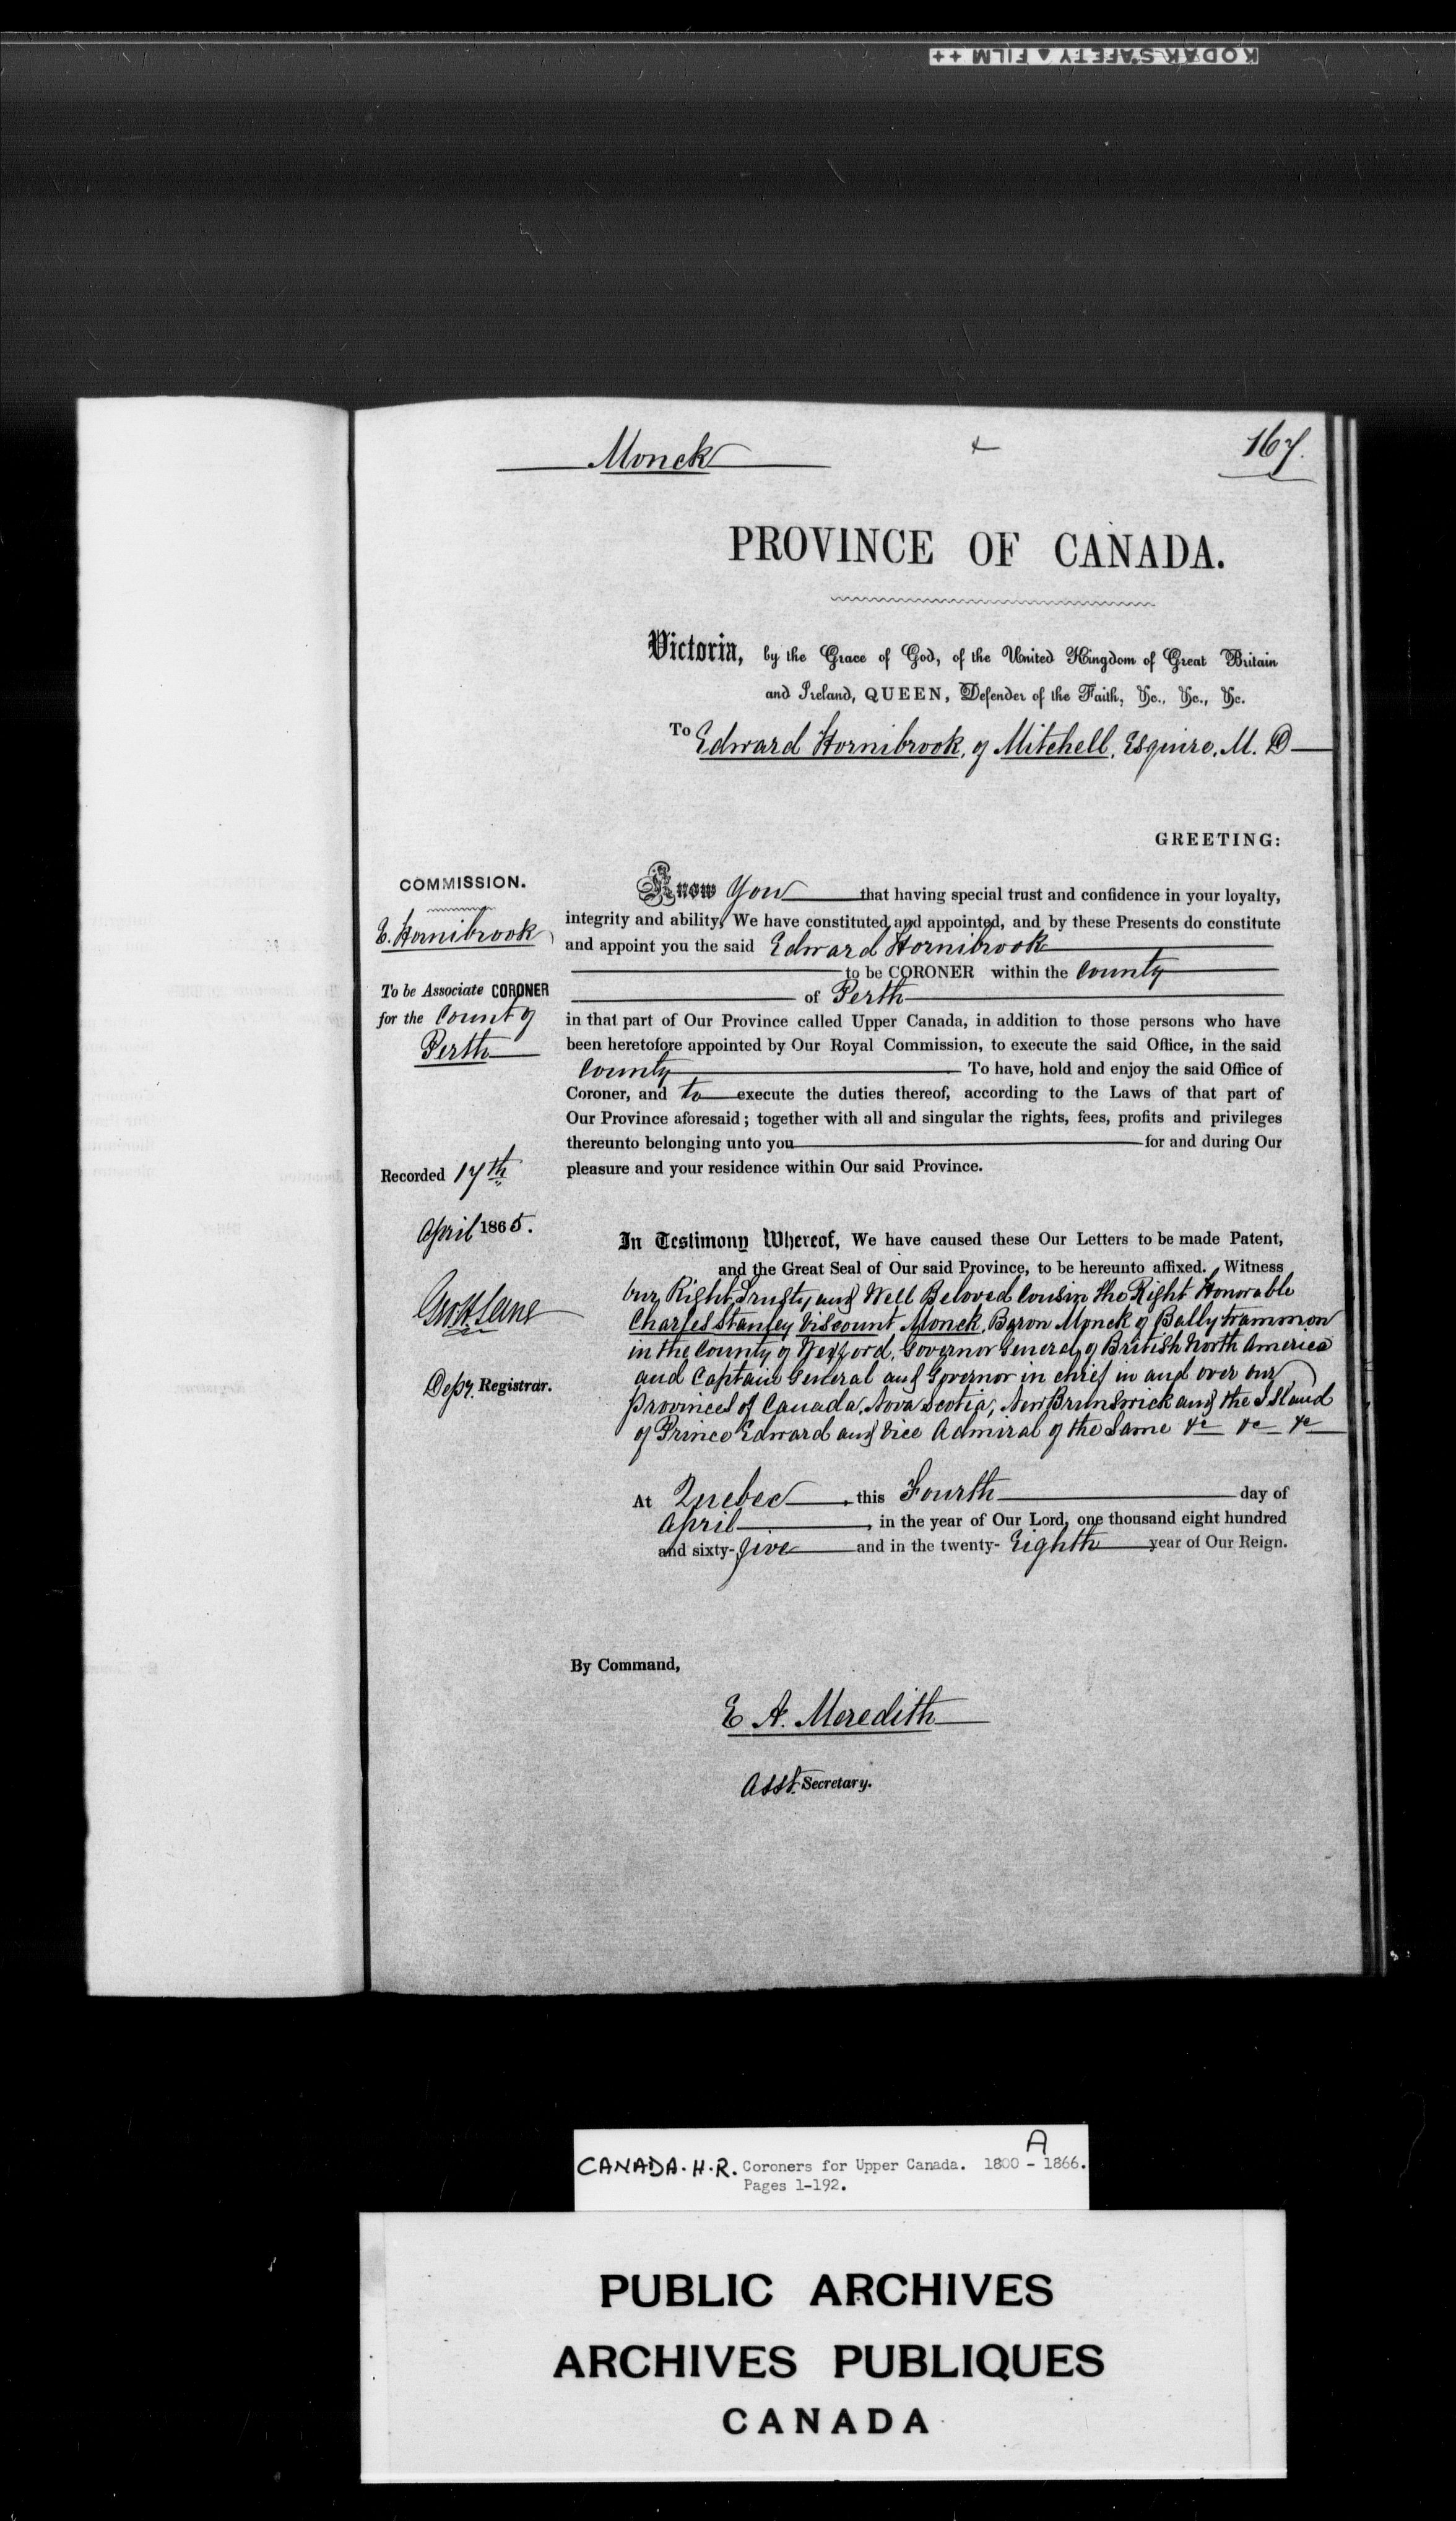 KODAK SAFETY ▲ FILM ++
Monck
167.
PROVINCE OF CANADA.
Victoria, by the Grace of God, of the United Kingdom of Great Britain
and Ireland, QUEEN, Defender of the Faith, &c., &c., &c.
To Edward Hornibrook, of Mitchell, Esquire, M. D
GREETING:
COMMISSION.
E. Hornibrook
To be Associate CORONER
for the County of
Perth
Recorded 17th
April 1865.
Geo H Lane
Depy. Registrar.
Know You that having special trust and confidence in your loyalty,
integrity and ability, We have constituted and appointed, and by these Presents do constitute
and appoint you the said Edward Hornibrook
to be CORONER within the County
of Perth
in that part of Our Province called Upper Canada, in addition to those persons who have
been heretofore appointed by Our Royal Commission, to execute the said Office, in the said
County To have, hold and enjoy the said Office of
Coroner, and to execute the duties thereof, according to the Laws of that part of
Our Province aforesaid; together with all and singular the rights, fees, profits and privileges
thereunto belonging unto you for and during Our
pleasure and your residence within Our said Province.
In Testimony Whereof, We have caused these Our Letters to be made Patent,
and the Great Seal of Our said Province, to be hereunto affixed. Witness
Our Right Trusty and Well Beloved Cousin the Right Honorable
Charles Stanley Viscount Monck, Baron Monck of Ballytrammon
in the County of Wexford, Governor General of British North America
and Captain General and Governor in chief in and over our
Provinces of Canada, Nova Scotia, New Brunswick and the Island
of Prince Edward and Vice Admiral of the Same &c &c &c
At Quebec, this Fourth day of
April, in the year of Our Lord, one thousand eight hundred
and sixty-five and in the twenty-Eighth year of Our Reign.
By Command,
E A. Meredith
Asst. Secretary.
CANADA. H.R. Coroners for Upper Canada. 1800 - A 1866.
Pages 1-192.
PUBLIC ARCHIVES
ARCHIVES PUBLIQUES
CANADA